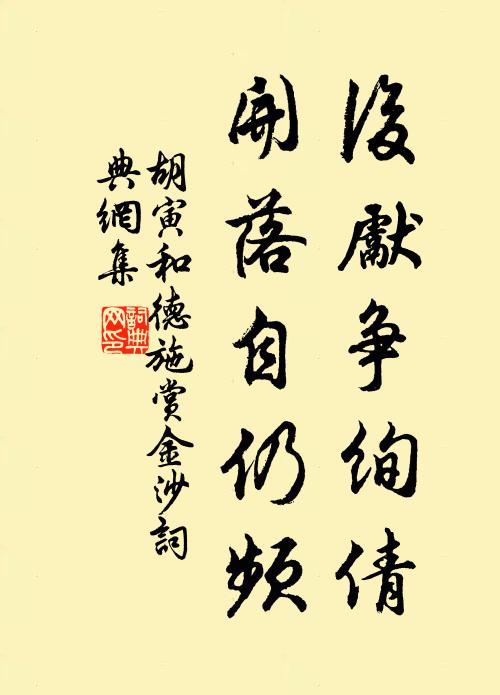 後獻争絢倩
開落自仍頻
胡寅和德施赏金沙詞
典網集
詞典
网印